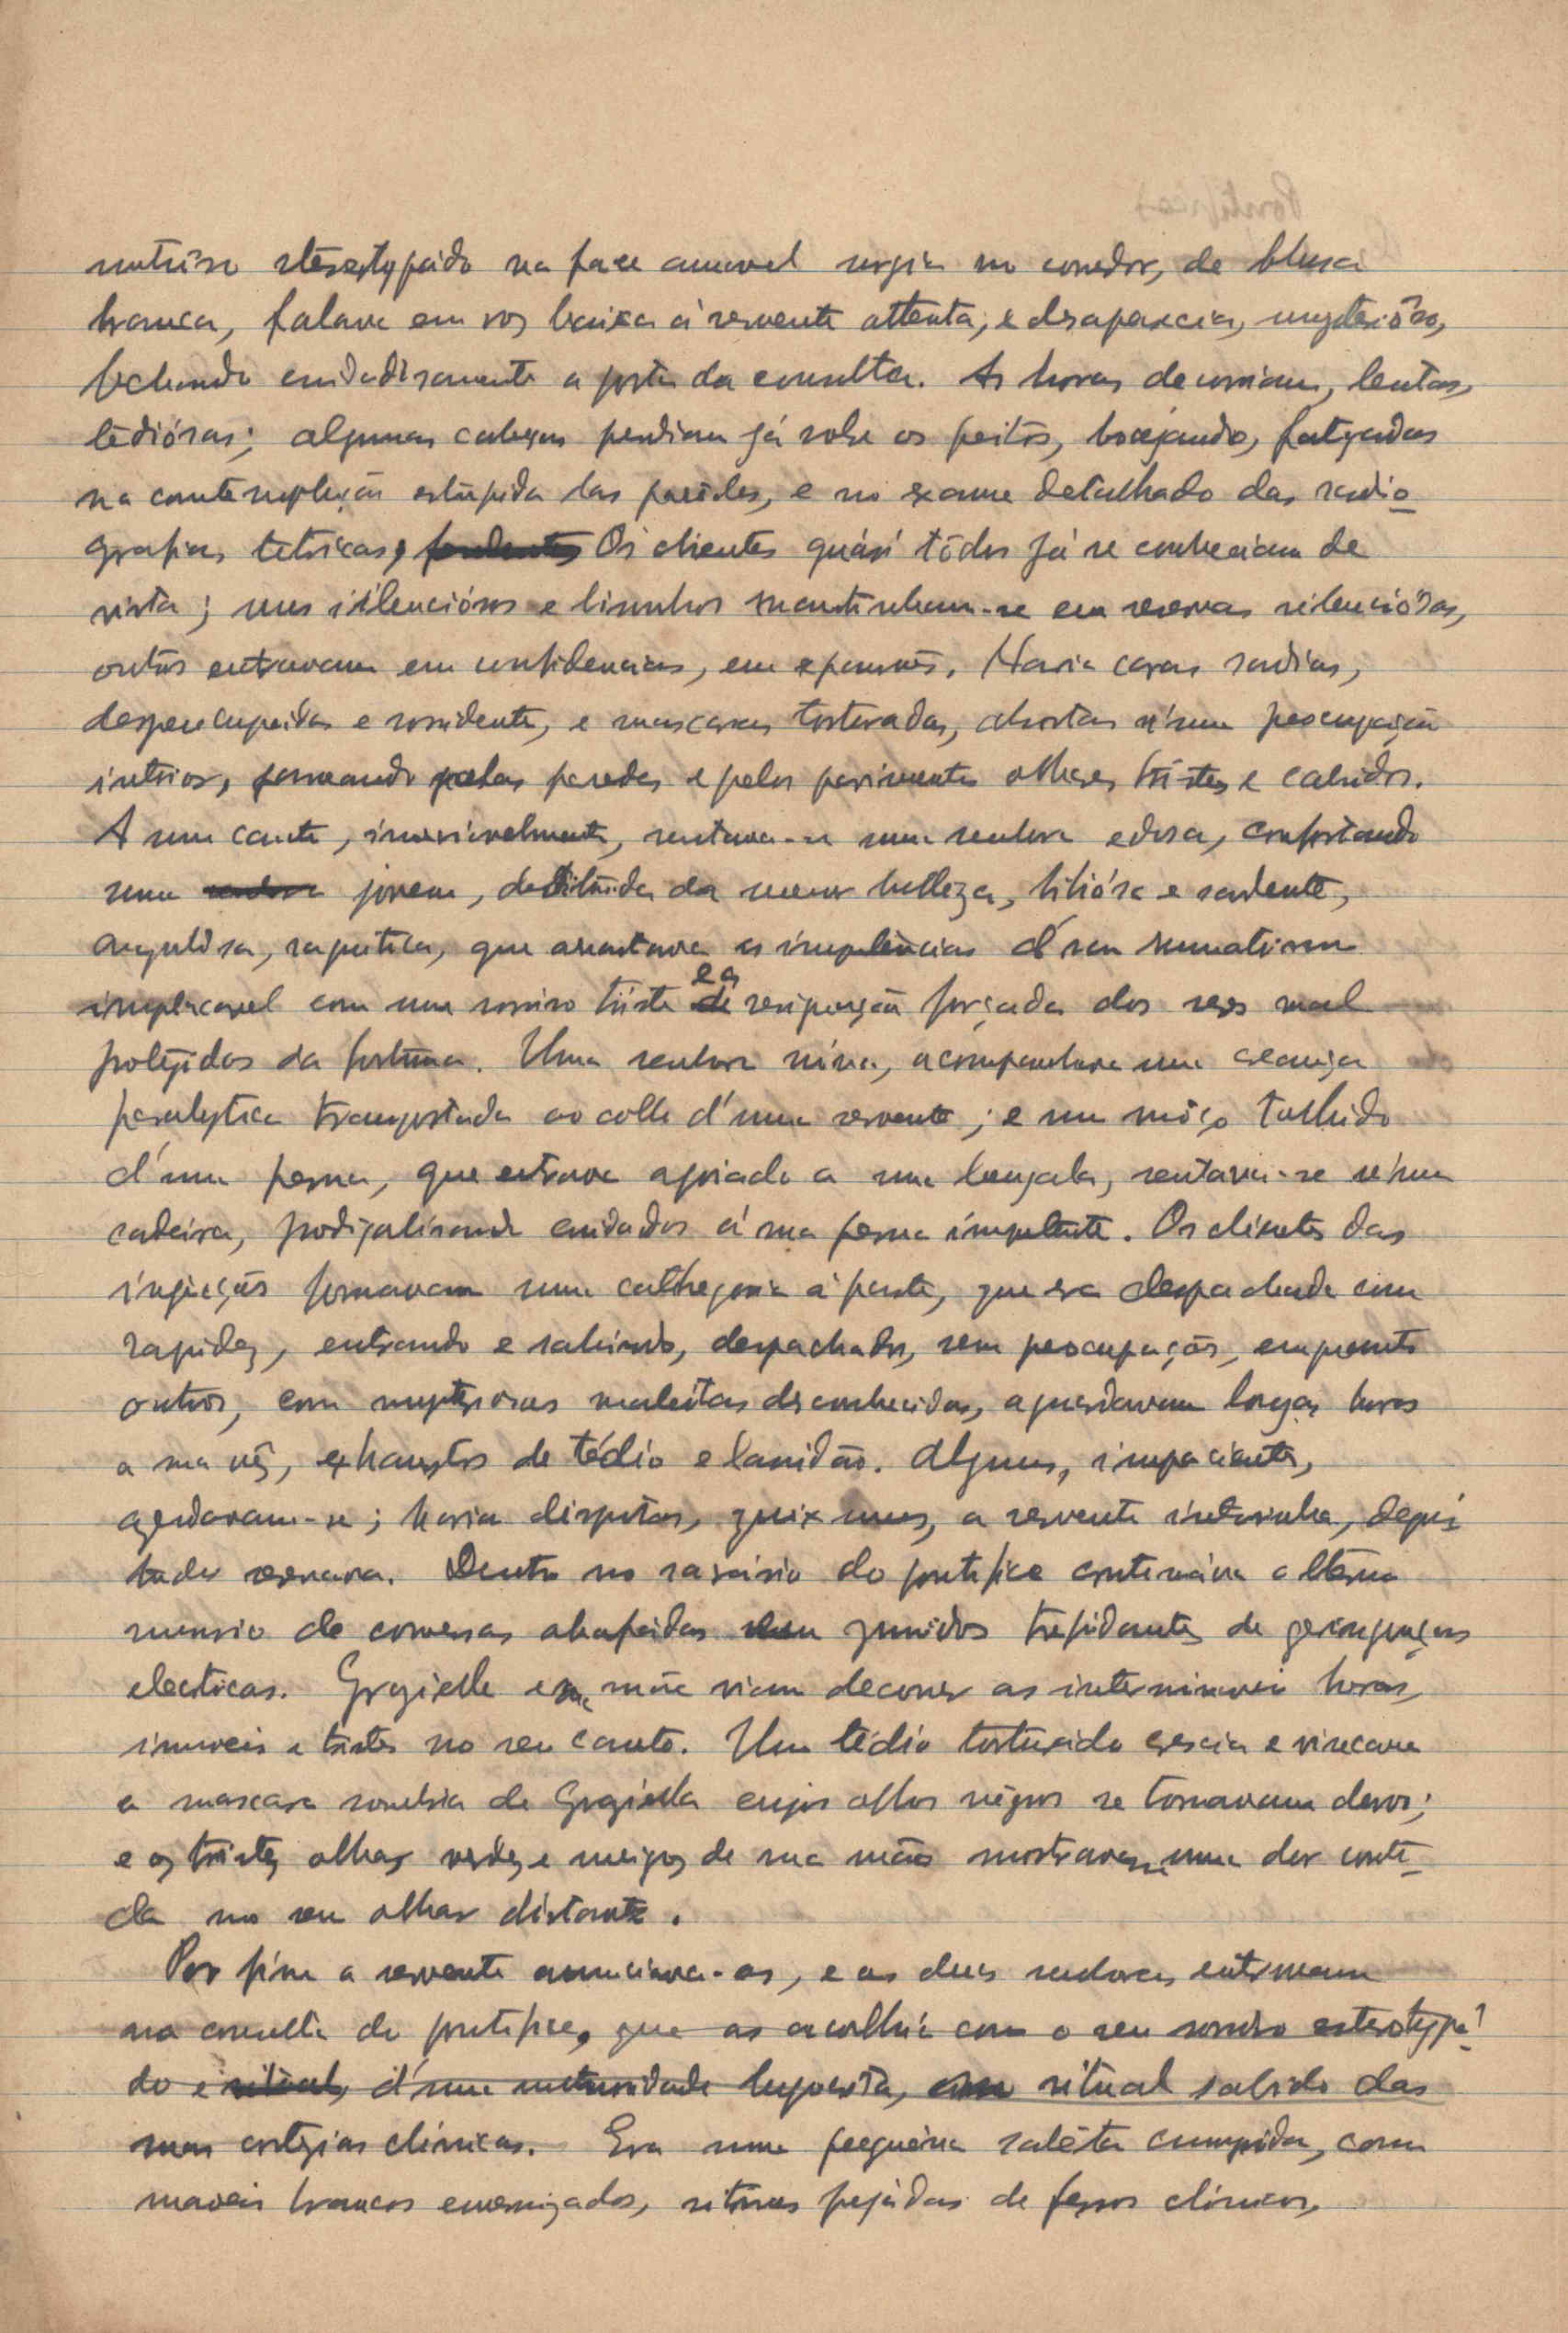 sorriso stereotypado na face amavel surgia no corredor, de blusa
branca, falava em voz baixa á servente attenta, e desaparecia, mysterióso,
fechando cuidadosamente a porta da consulta. As horas decorriam, lentas,
tediósas; algumas cabeças pendiam já sobre os peitos, bocejando, fatigadas
na contemplação estupida das parêdes, e no exame detalhado das radio-
grafias tetricas, Os clientes quási tôdos já se conheciam de
vista; uns silenciósos e bisonhos mantinham-se em reservas silenciósas,
outros entravam em confidencias, em expansões. Havia caras sadias,
despreocupadas e sorridentes, e mascaras torturadas, absortas n'uma preocupação
interior, passeando pelas paredes e pelos pavimentos olhares tristes e cahidos.
A um canto, invariavelmente, sentava-se uma senhora edosa, confortando
uma senhora jovem, destituida da menor belleza, biliósa e sardenta,
angulosa, raquitica, que arrastava as impotencias d'um reumatismo
implacavel com um sorriso triste de e a resignação forçada dos seres mal
protegidos da fortuna. Uma senhora viúva, acompanhava uma creança
paralytica transportada ao collo d'uma servente; e um môço tolhido
d'uma perna, que entrava apoiado a uma bengala, sentava-se n'uma
cadeira, prodigalisando cuidados á sua perna impotente. Os clientes das
injecções formavam uma cathegoria á parte, que era despachada com
rapidez, entrando e sahindo, despachados, sem preocupações, emquanto
outros, com mysteriosas maleitas desconhecidas, aguardavam longas horas
a sua vêz, exhaustos de tédio e lassidão. Alguns, impacientes,
azedavam-se; havia disputas, queixumes, a servente intervinha, depois
tudo serenava. Dentro no sacrário do pontifice continuáva o eterno
murmurio de conversas abafadas com zunidos trepidantes de geringonças
electricas. Graziella e sua mãe viam decorrer as interminaveis horas,
immoveis e tristes no seu canto. Um tédio torturado crescia e vincava
a mascara sombria de Graziella cujos olhos negros se tornavam duros;
e os tristes olhos verdes e meigos de sua mãe mostravam uma dor conti-
da no seu olhar distante.
Por fim a servente anunciava-as, e as duas senhoras entravam
na consulta do pontifice, que as acolhia com o seu sorriso estereotypa-
do e ritual, d'uma untuosidade hypocrita, ritual sabido das
suas liturgias clínicas. Era uma pequena saléta cumprida, com
moveis brancos envernizados, vitrines pejádas de ferros clinicos,